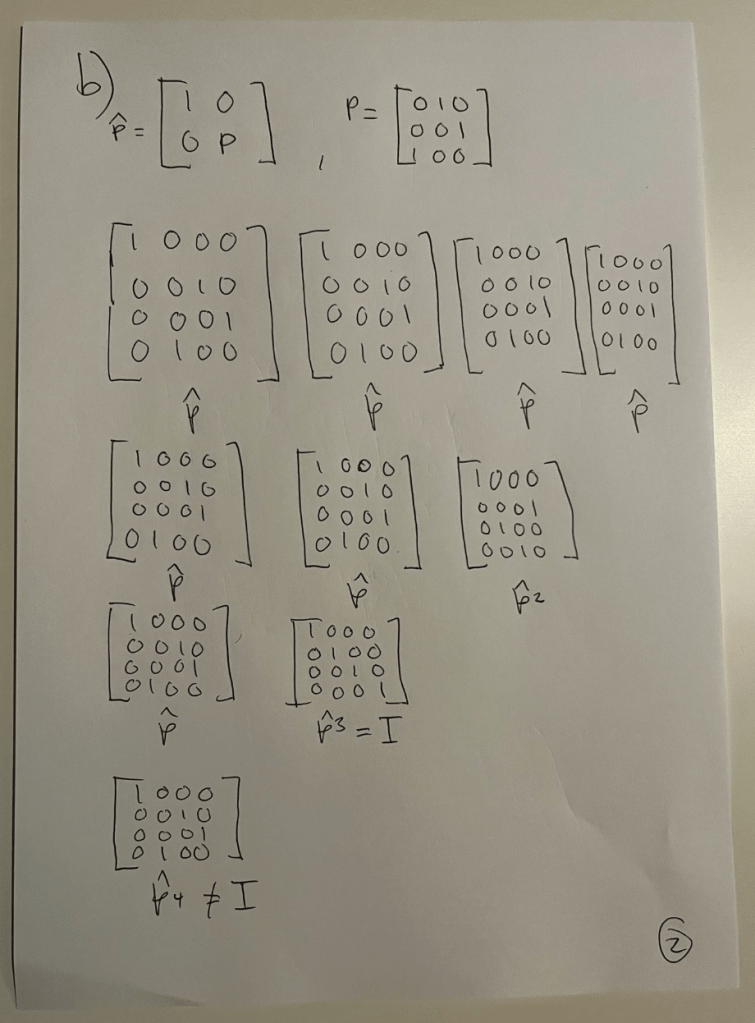 b)
P̂ = [ 1 0 ] , P = [ 0 1 0 ]
[ 0 P ] [ 0 0 1 ]
[ 1 0 0 ]
[ 1 0 0 0 ] [ 1 0 0 0 ] [ 1 0 0 0 ] [ 1 0 0 0 ]
[ 0 0 1 0 ] [ 0 0 1 0 ] [ 0 0 1 0 ] [ 0 0 1 0 ]
[ 0 0 0 1 ] [ 0 0 0 1 ] [ 0 0 0 1 ] [ 0 0 0 1 ]
[ 0 1 0 0 ] [ 0 1 0 0 ] [ 0 1 0 0 ] [ 0 1 0 0 ]
P̂ P̂ P̂ P̂
[ 1 0 0 0 ] [ 1 0 0 0 ] [ 1 0 0 0 ]
[ 0 0 1 0 ] [ 0 0 1 0 ] [ 0 0 0 1 ]
[ 0 0 0 1 ] [ 0 0 0 1 ] [ 0 1 0 0 ]
[ 0 1 0 0 ] [ 0 1 0 0 ] [ 0 0 1 0 ]
P̂ P̂ P̂²
[ 1 0 0 0 ] [ 1 0 0 0 ]
[ 0 0 1 0 ] [ 0 1 0 0 ]
[ 0 0 0 1 ] [ 0 0 1 0 ]
[ 0 1 0 0 ] [ 0 0 0 1 ]
P̂ P̂³ = I
[ 1 0 0 0 ]
[ 0 0 1 0 ]
[ 0 0 0 1 ]
[ 0 1 0 0 ]
P̂⁴ ≠ I
②